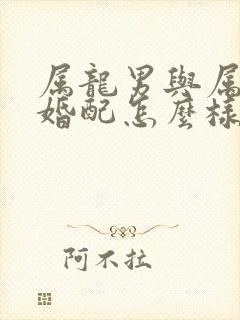 属龍男與属
婚配怎麼樣
阿不拉